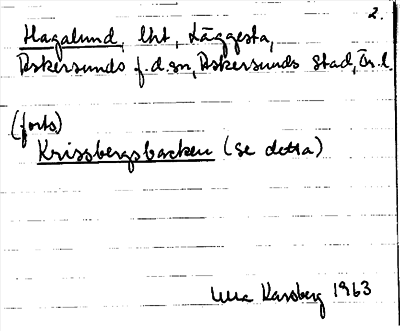 2.
Hagalund, lht, Läggesta,
Askersunds f.d.sn, Askersunds stad, Ör.l.
(forts)
Krissbergsbacken (se detta)
Karsberg 1963